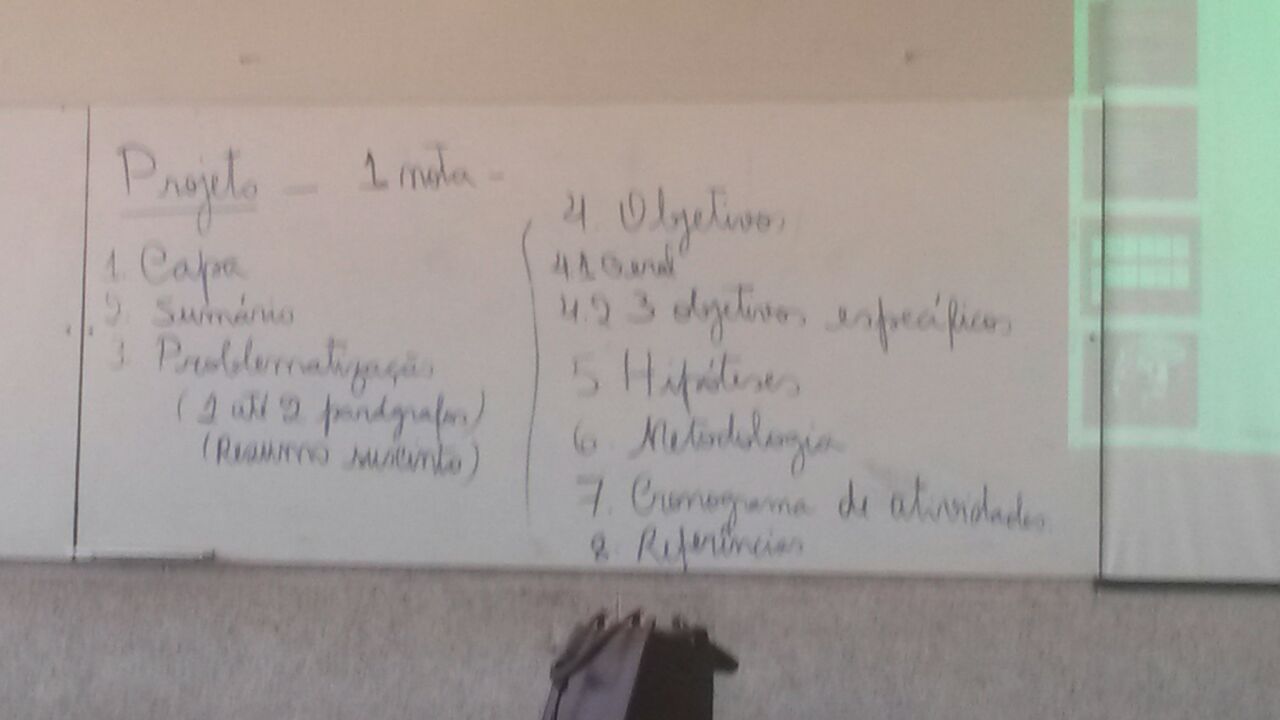 Projeto — 1 nota -
1. Capa
2. Sumário
3. Problematização
(1 até 2 parágrafos)
(Resumo suscinto)
4. Objetivos
4.1 Geral
4.2 3 objetivos específicos
5 Hipóteses
6. Metodologia
7. Cronograma de atividades
8. Referências